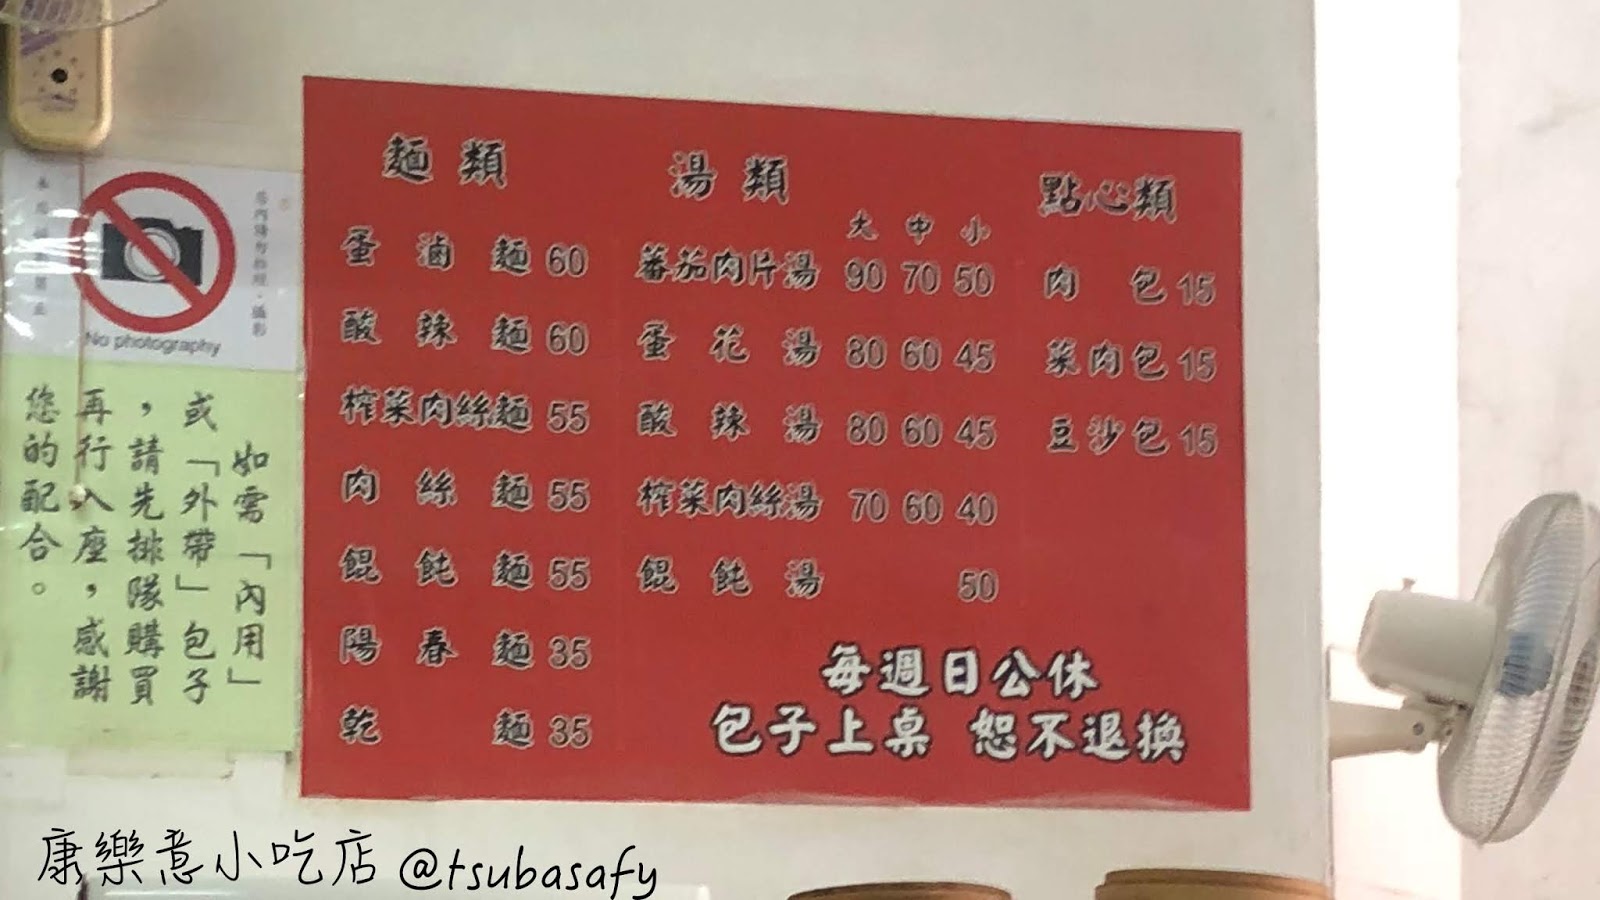 麵類
蛋滷麵 60
酸辣麵 60
榨菜肉絲麵 55
肉絲麵 55
餛飩麵 55
陽春麵 35
乾麵 35
湯類
大 中 小
蕃茄肉片湯 90 70 50
蛋花湯 80 60 45
酸辣湯 80 60 45
榨菜肉絲湯 70 60 40
餛飩湯 50
點心類
肉包 15
菜肉包 15
豆沙包 15
每週日公休
包子上桌 恕不退換
No photography
如需「內用」
或「外帶」包子
,請先排隊購買
再行入座,感謝
您的配合。
康樂意小吃店 @tsubasafy